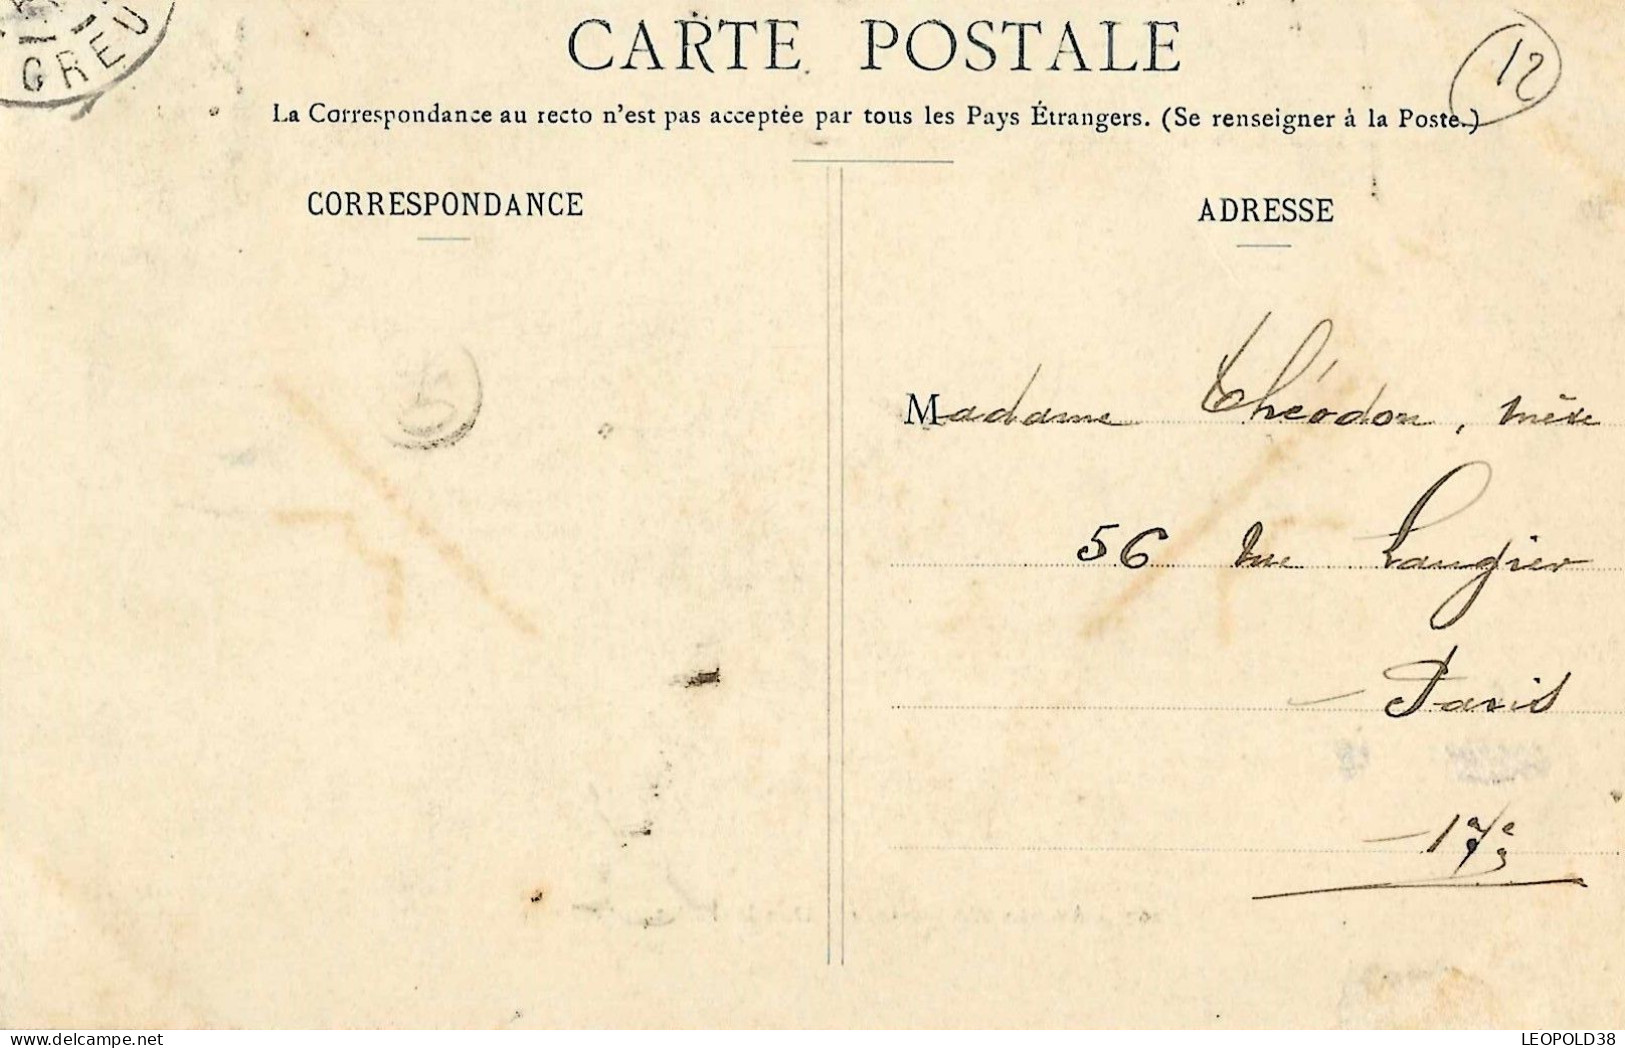 CREU
CARTE POSTALE
12
La Correspondance au recto n'est pas acceptée par tous les Pays Étrangers. (Se renseigner à la Poste.)
CORRESPONDANCE
ADRESSE
Madame Théodon, mère
56 rue Laugier
Paris
17e
delcampe.net
LEOPOLD38